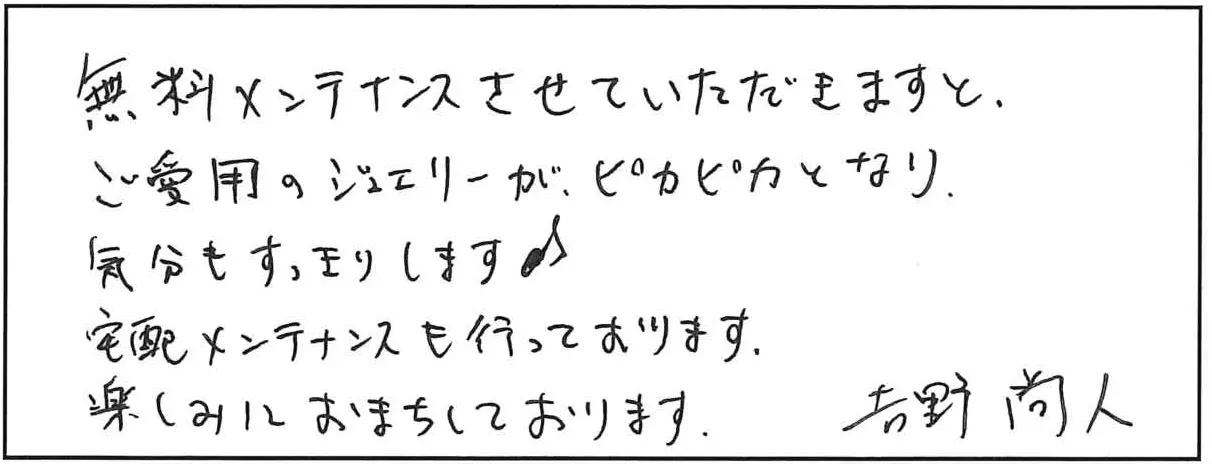 無料メンテナンスさせていただきますと、
ご愛用のジュエリーが、ピカピカとなり、
気分もすっきりします♪
宅配メンテナンスも行っております。
楽しみにおまちしております。 吉野 尚人